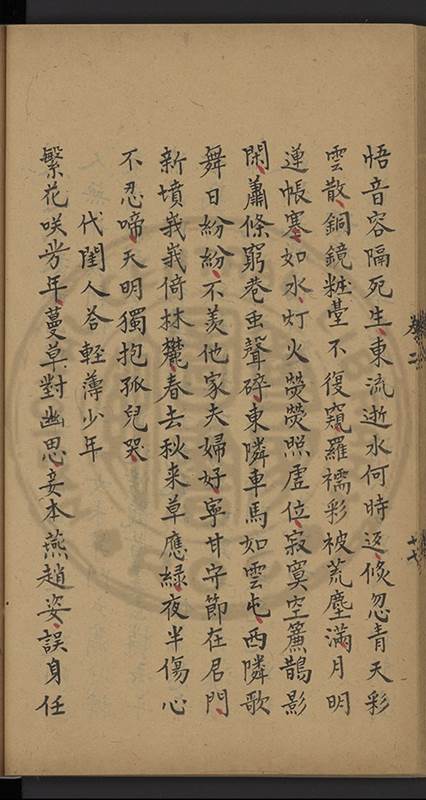 悟音容隔死生東流逝水何時返倐忽青天彩
雲散銅鏡粧臺不復窺羅襦彩被荒塵滿月明
連帳塞如水灯火熒熒照虛位寂寞空簾鵲影
閑蕭條窮巷虫聲碎東隣車馬如雲屯西隣歌
舞日紛紛不羨他家夫婦好寧甘守節在君門
新墳峩峩倚林麓春去秋来草應綠夜半傷心
不忍啼天明獨抱孤兒哭
代閨人答輕薄少年
繁花咲芳年蔓草對幽思妾本燕趙姿誤身任
卷二
十七